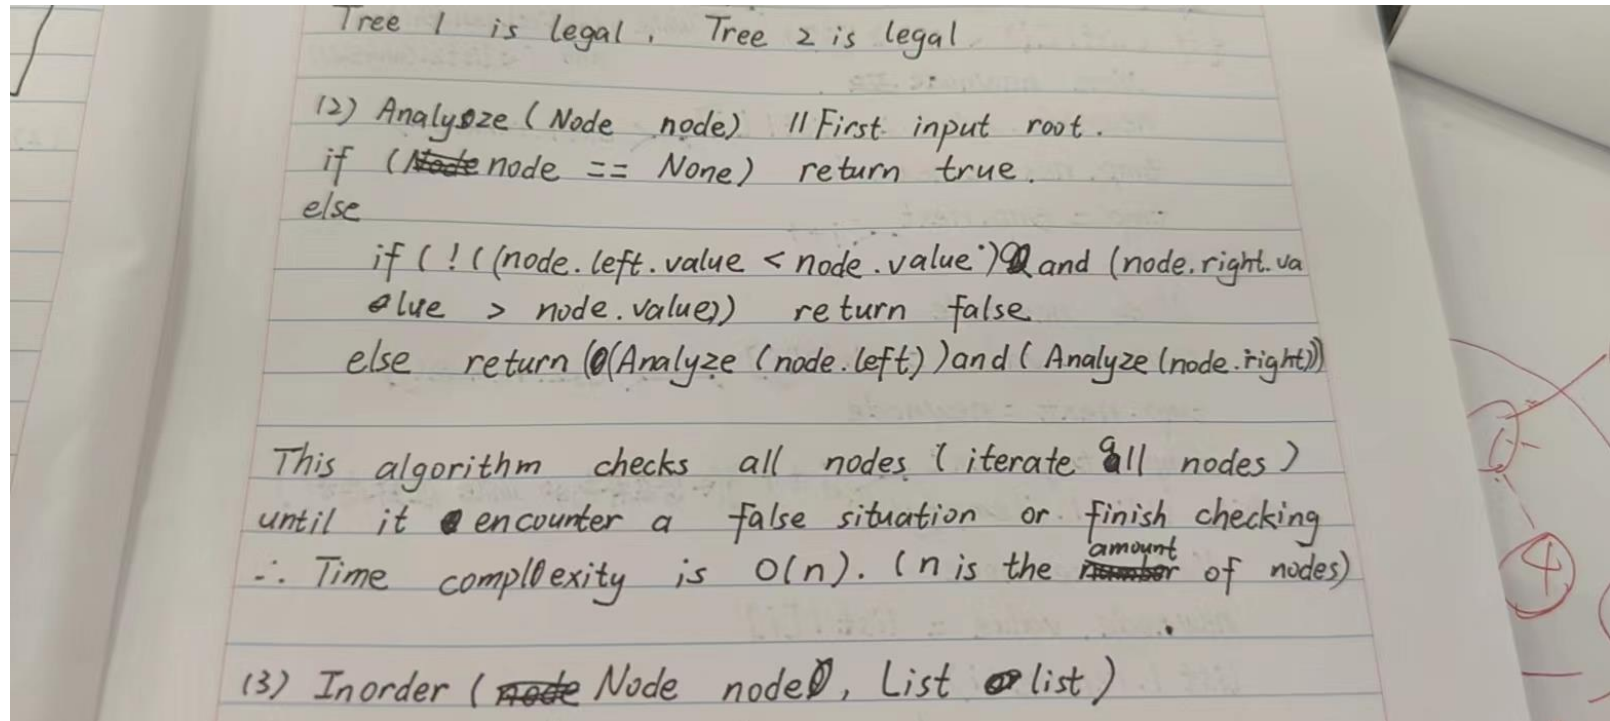 Tree 1 is legal. Tree 2 is legal
(2) Analyze (Node node) //First input root.
if (node == None) return true.
else
if (!((node.left.value < node.value) and (node.right.va
lue > node.value)) return false
else return ((Analyze (node.left)) and (Analyze (node.right))
This algorithm checks all nodes (iterate all nodes)
until it encounter a false situation or finish checking
∴ Time complexity is O(n). (n is the amount of nodes)
(3) Inorder (Node node, List list)
4